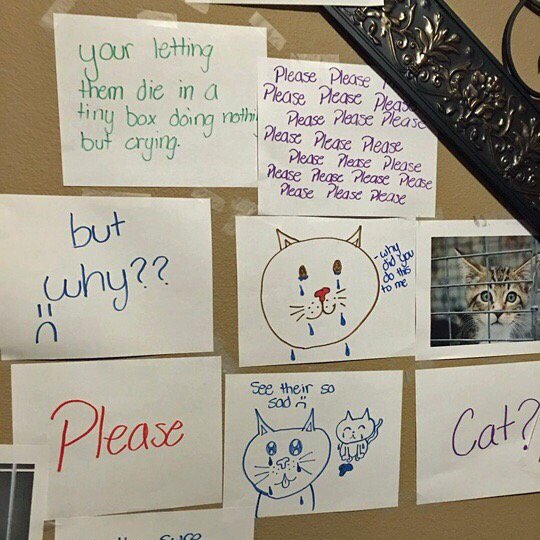 your letting
them die in a
tiny box doing
but crying.
Please Please
Please Please Please
Please Please Please
Please Please Please
Please Please Please
Please Please Please Please
Please Please Please
but
why??
:(
-why
did you
do this
to me
Please
See their so
sad :(
Cat?